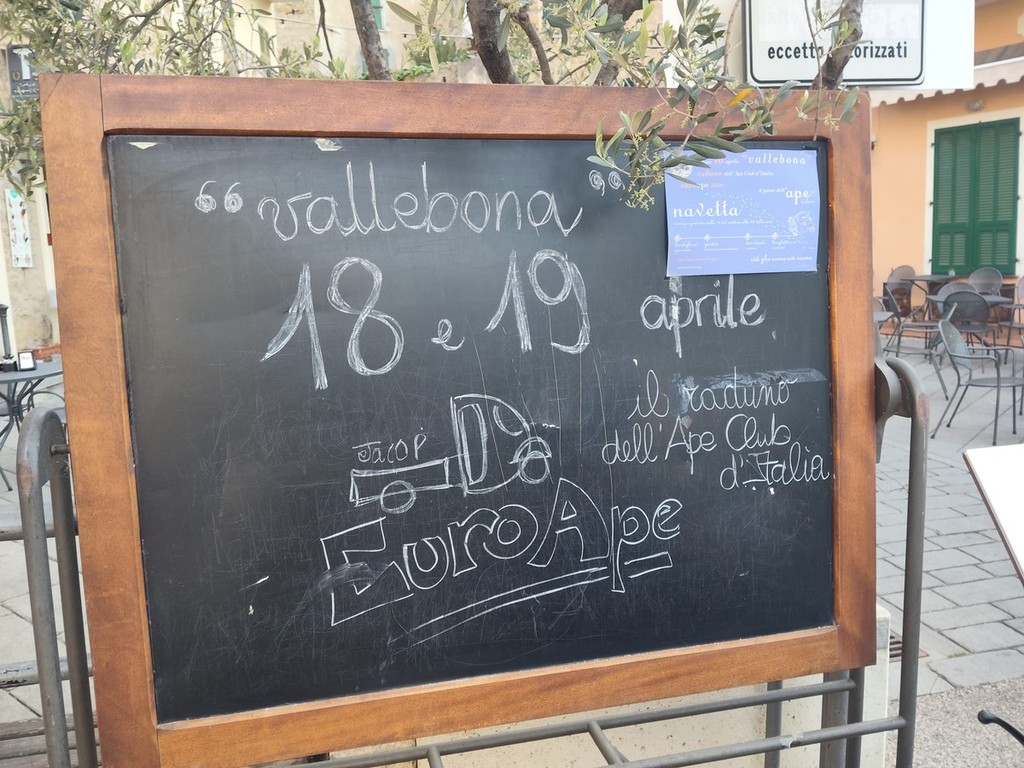 eccetto autorizzati
"vallebona"
18 e 19 aprile
il raduno
dell'Ape Club
d'Italia
JACOP
EuroApe
"vallebona"
raduno dell'Ape Club d'Italia
ape
navetta